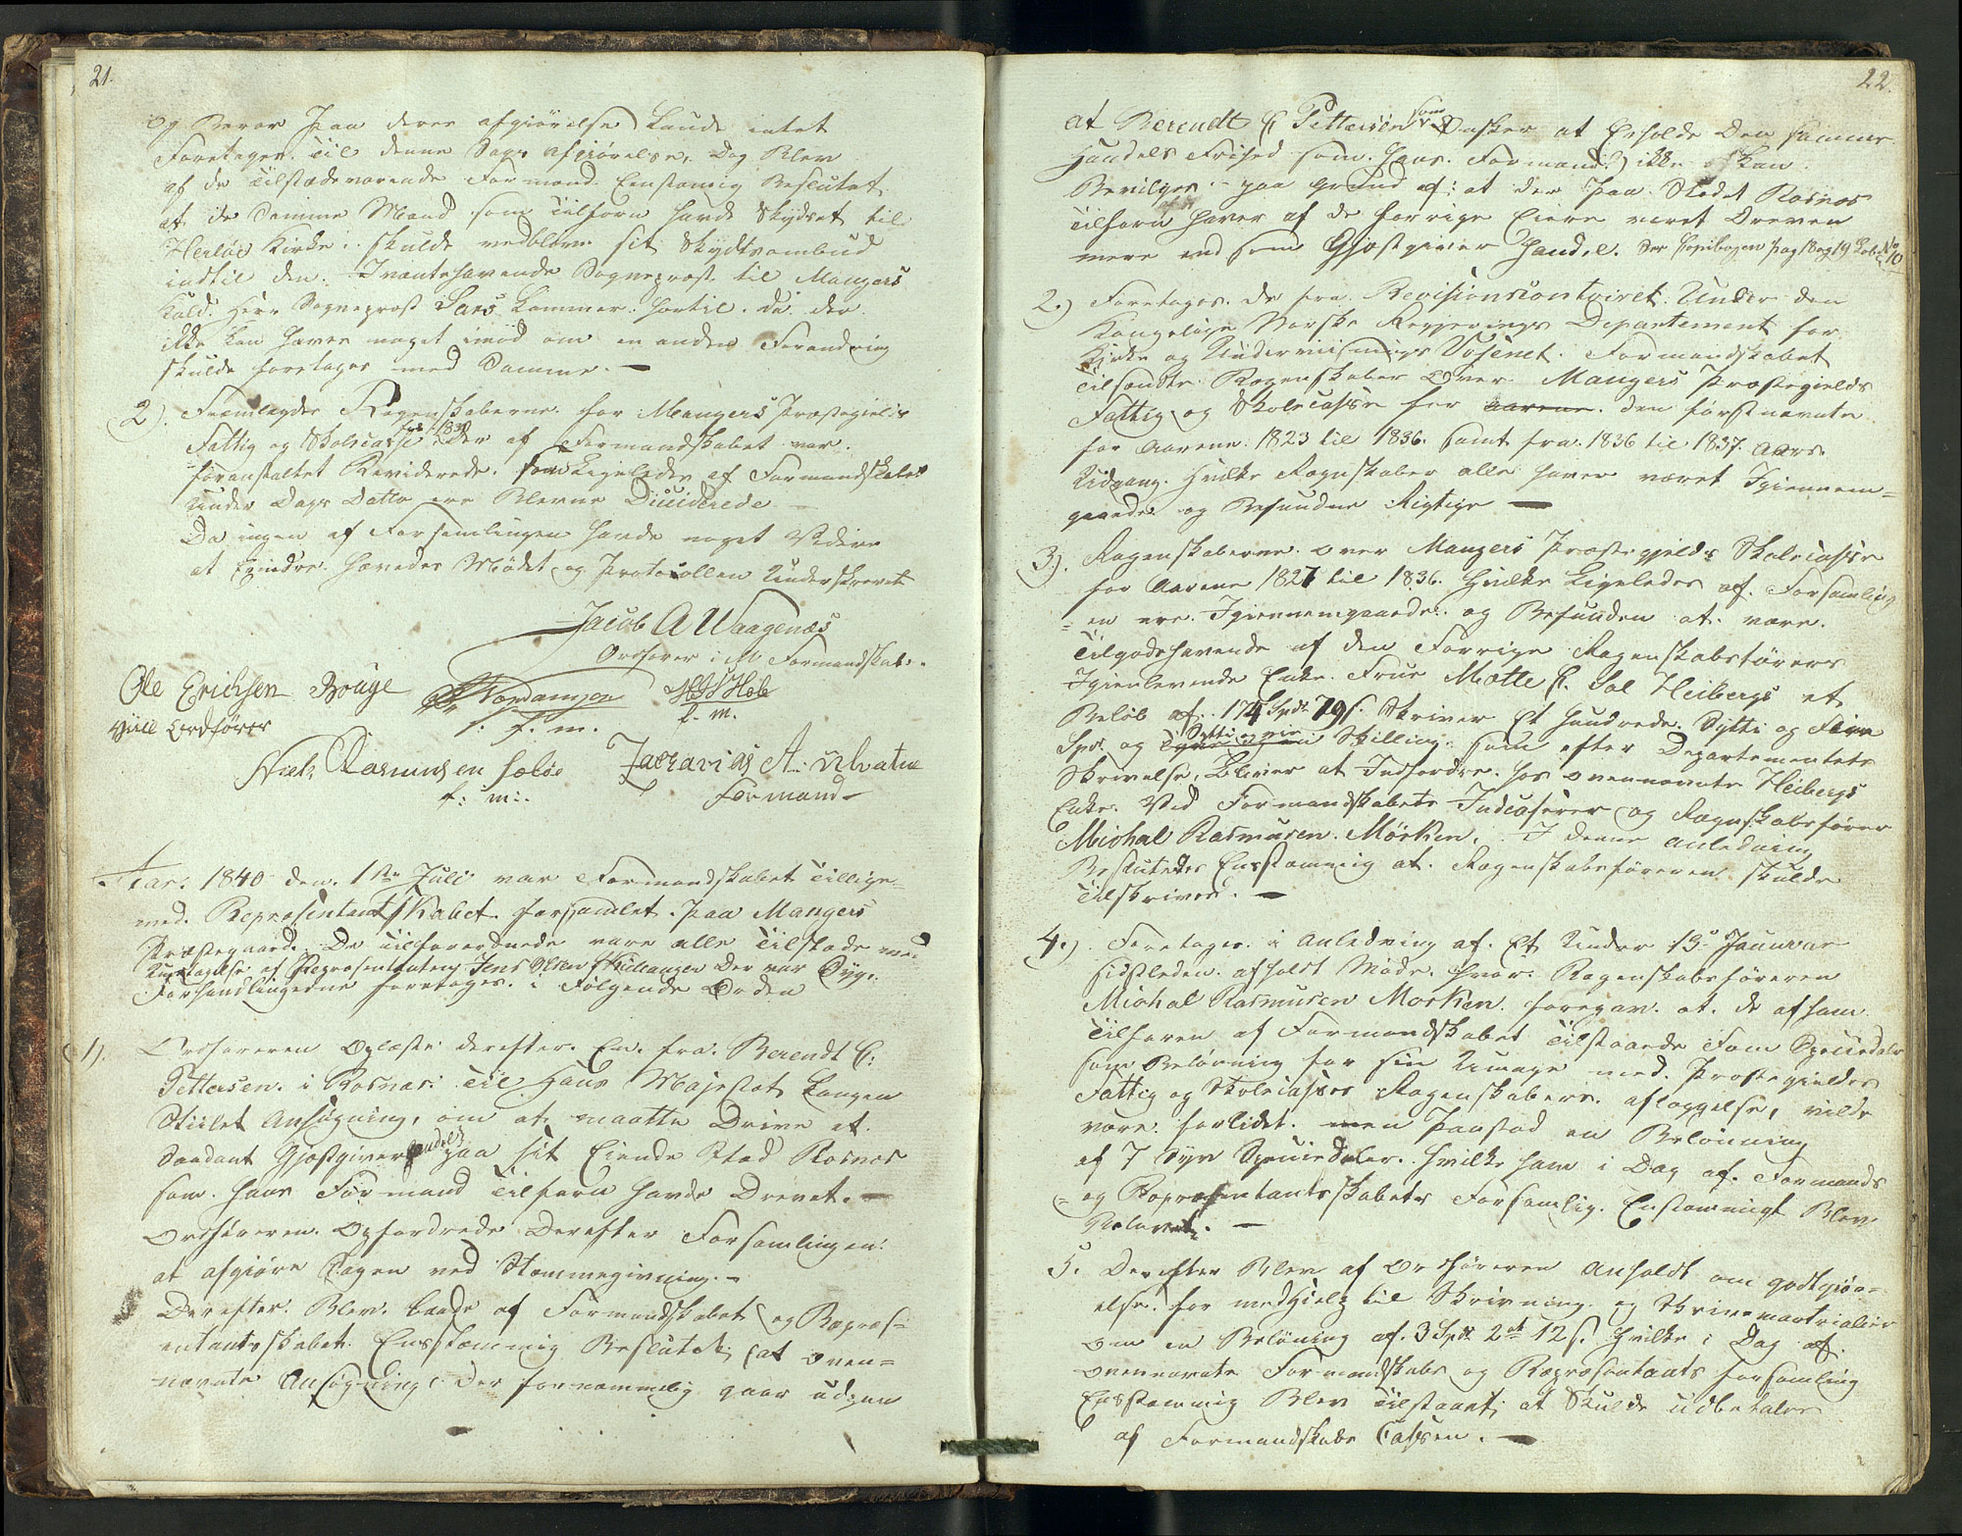 21.
og Beror paa deres afgiörelse kunde intet
Foretages til denne Sags Afgiörelse, dog Blev
af de tilstædeværende Formænd Eenstemig Besluttet
at de Samme Mænd som tilforn havde Skydset til
Herløe Kirke: skulde vedblive sit Skydsombud
indtil den: Sogneprest til Mangers
Kald. Herr Sogneprest Lars kommer hertil. da der
ikke kan haves noget imod om en anden Forandring
skulde foretages med Samme. —
2). Fremlagdes Regenskaberne for Mangers Præstegields
Fattig og Skolecasse for 1839 af Formandskabet var
foranstaltet Reviderede. som Ligeledes af Formandskabet
Under Dags Datto ere Blevne Diciderede —
Da ingen af Forsamlingen havde noget Videre
at Erindre hævedes Mødet og Protocollen Underskrevet
Jacob A Waagenæs
Ordfører i M Formandskab.
Ole Erichsen Bouge
Viice Ordfører
f. m.
f. m.
Niels Rasmusen Sæløe
f: m:.
Zacharias A.
Formand
Aar: 1840 den. 1te Juli var Formandskabet Tillige-
med. Repræsentantskabet forsamlet paa Mangers
Præstegaard. De tilforordnede vare alle Tilstæde med
Undtagelse af Repræsentanten Jens Olsen der var Syg.
Forhandlingerne foretoges i Følgende Orden
1). Ordføreren Oplæste derefter. En. fra. Berendt E:
Pettersen. i Rosnæs: til Hans Majestæt Kongen
Stiilet Ansøgning, om at maatte Drive et
Saadant Gjæstgiver handel paa sit Eiende Stæd Rosnæs
som. hans Formand Tilforn havde Drevet. —
Ordføreren. Opfordrede Derefter Forsamlingen:
at afgiøre Sagen ved Stemmegivning. —
Derefter. Blev. baade af Formandskabet og Repræs-
entantskabet Eenstemmig Besluttet, at oven-
nævnte Ansøgning: der fornemmelig gaar udpaa
22.
at Berendt E Pettersen som Ønsker at Erholde den samme
Handels Frihed som. hans. Formand) ikke kan
Bevilges. — paa grund af: at der paa Stedet Rosnæs
tilforn haver af de forrige Eiere været Dreven
mere end som Gjæstgiver Handel. Pag 19 No 10
2.) Foretoges. de fra. Revisionscontoiret. Under den
Kongelige Norske Regjerings Departement for
Kirke og Underviisnings Væsenet. Formandskabet
tilsendte Regenskaber Over Mangers Præstegields
Fattig og Skolecasse for aarene. den førstnævnte
for Aarene. 1823 til 1836. samt fra. 1836 til 1837. Aars
Udgang. Hvilke Regnskaber alle haver været Igiennem=
gaaede og Befundne Rigtige —
3). Regenskaberne. over Mangers Præstegjelds Skolecasse
for Aarene 1827 til 1836. Hvilke Ligeledes af. Forsamling
= en ere. Igiennemgaaede. og Befunden at. være.
tilgodehavende af den Forrige Regenskabsførers
Igienlevende Enke. Frue Mætte E. Sal Heibergs et
Beløb af. 174 Spdr 79 s. Skriver Et Hundrede. Sytti og Fiire
Spd. og Sytti og nie Skilling. som efter Departementets
Skrivelse, Bliver at Indfordre. hos ovennævnte Heibergs
Enke. Ved Formandskabets Indcaserer og Regnskabsfører
Michal Rasmusen Mörken. I denne anledning
Besluttedes Eenstemmig at. Regenskabsføreren skulde
tilskrives. —
4.) Foretoges. i Anledning af. Et Under 13de Januvar
sidstleden. afholdt Møde. hvor. Regenskabsføreren
Michal Rasmusen Morken. foregav. at. de af ham
tilforn af Formandskabet tilstaaede Fem Speciedaler
som Belönning for sin Umage med. Præstegieldes
Fattig og Skolecasses Regenskabers. aflæggelse, vilde
være. forlidet. men Paastod en Belönning
af 7 syv Speciedaler. Hvilke ham i Dag af. Formands
= og Repræsentantskabets Forsamling. Enstemmigt Blev
—
5. Derefter Blev af Ordføreren Anholdt om godtgiør-
else. for medhielp til Skrivning og Skrivematrialier
om en Belöning af. 3 Spdr 2 ort 12 s. hvilke i Dag af.
ovennævnte Formandskabs og Repræsentants forsamling
Eenstemmig Blev tilstaaet, at Skulde udbetales
af Formandskabs Cassen. —